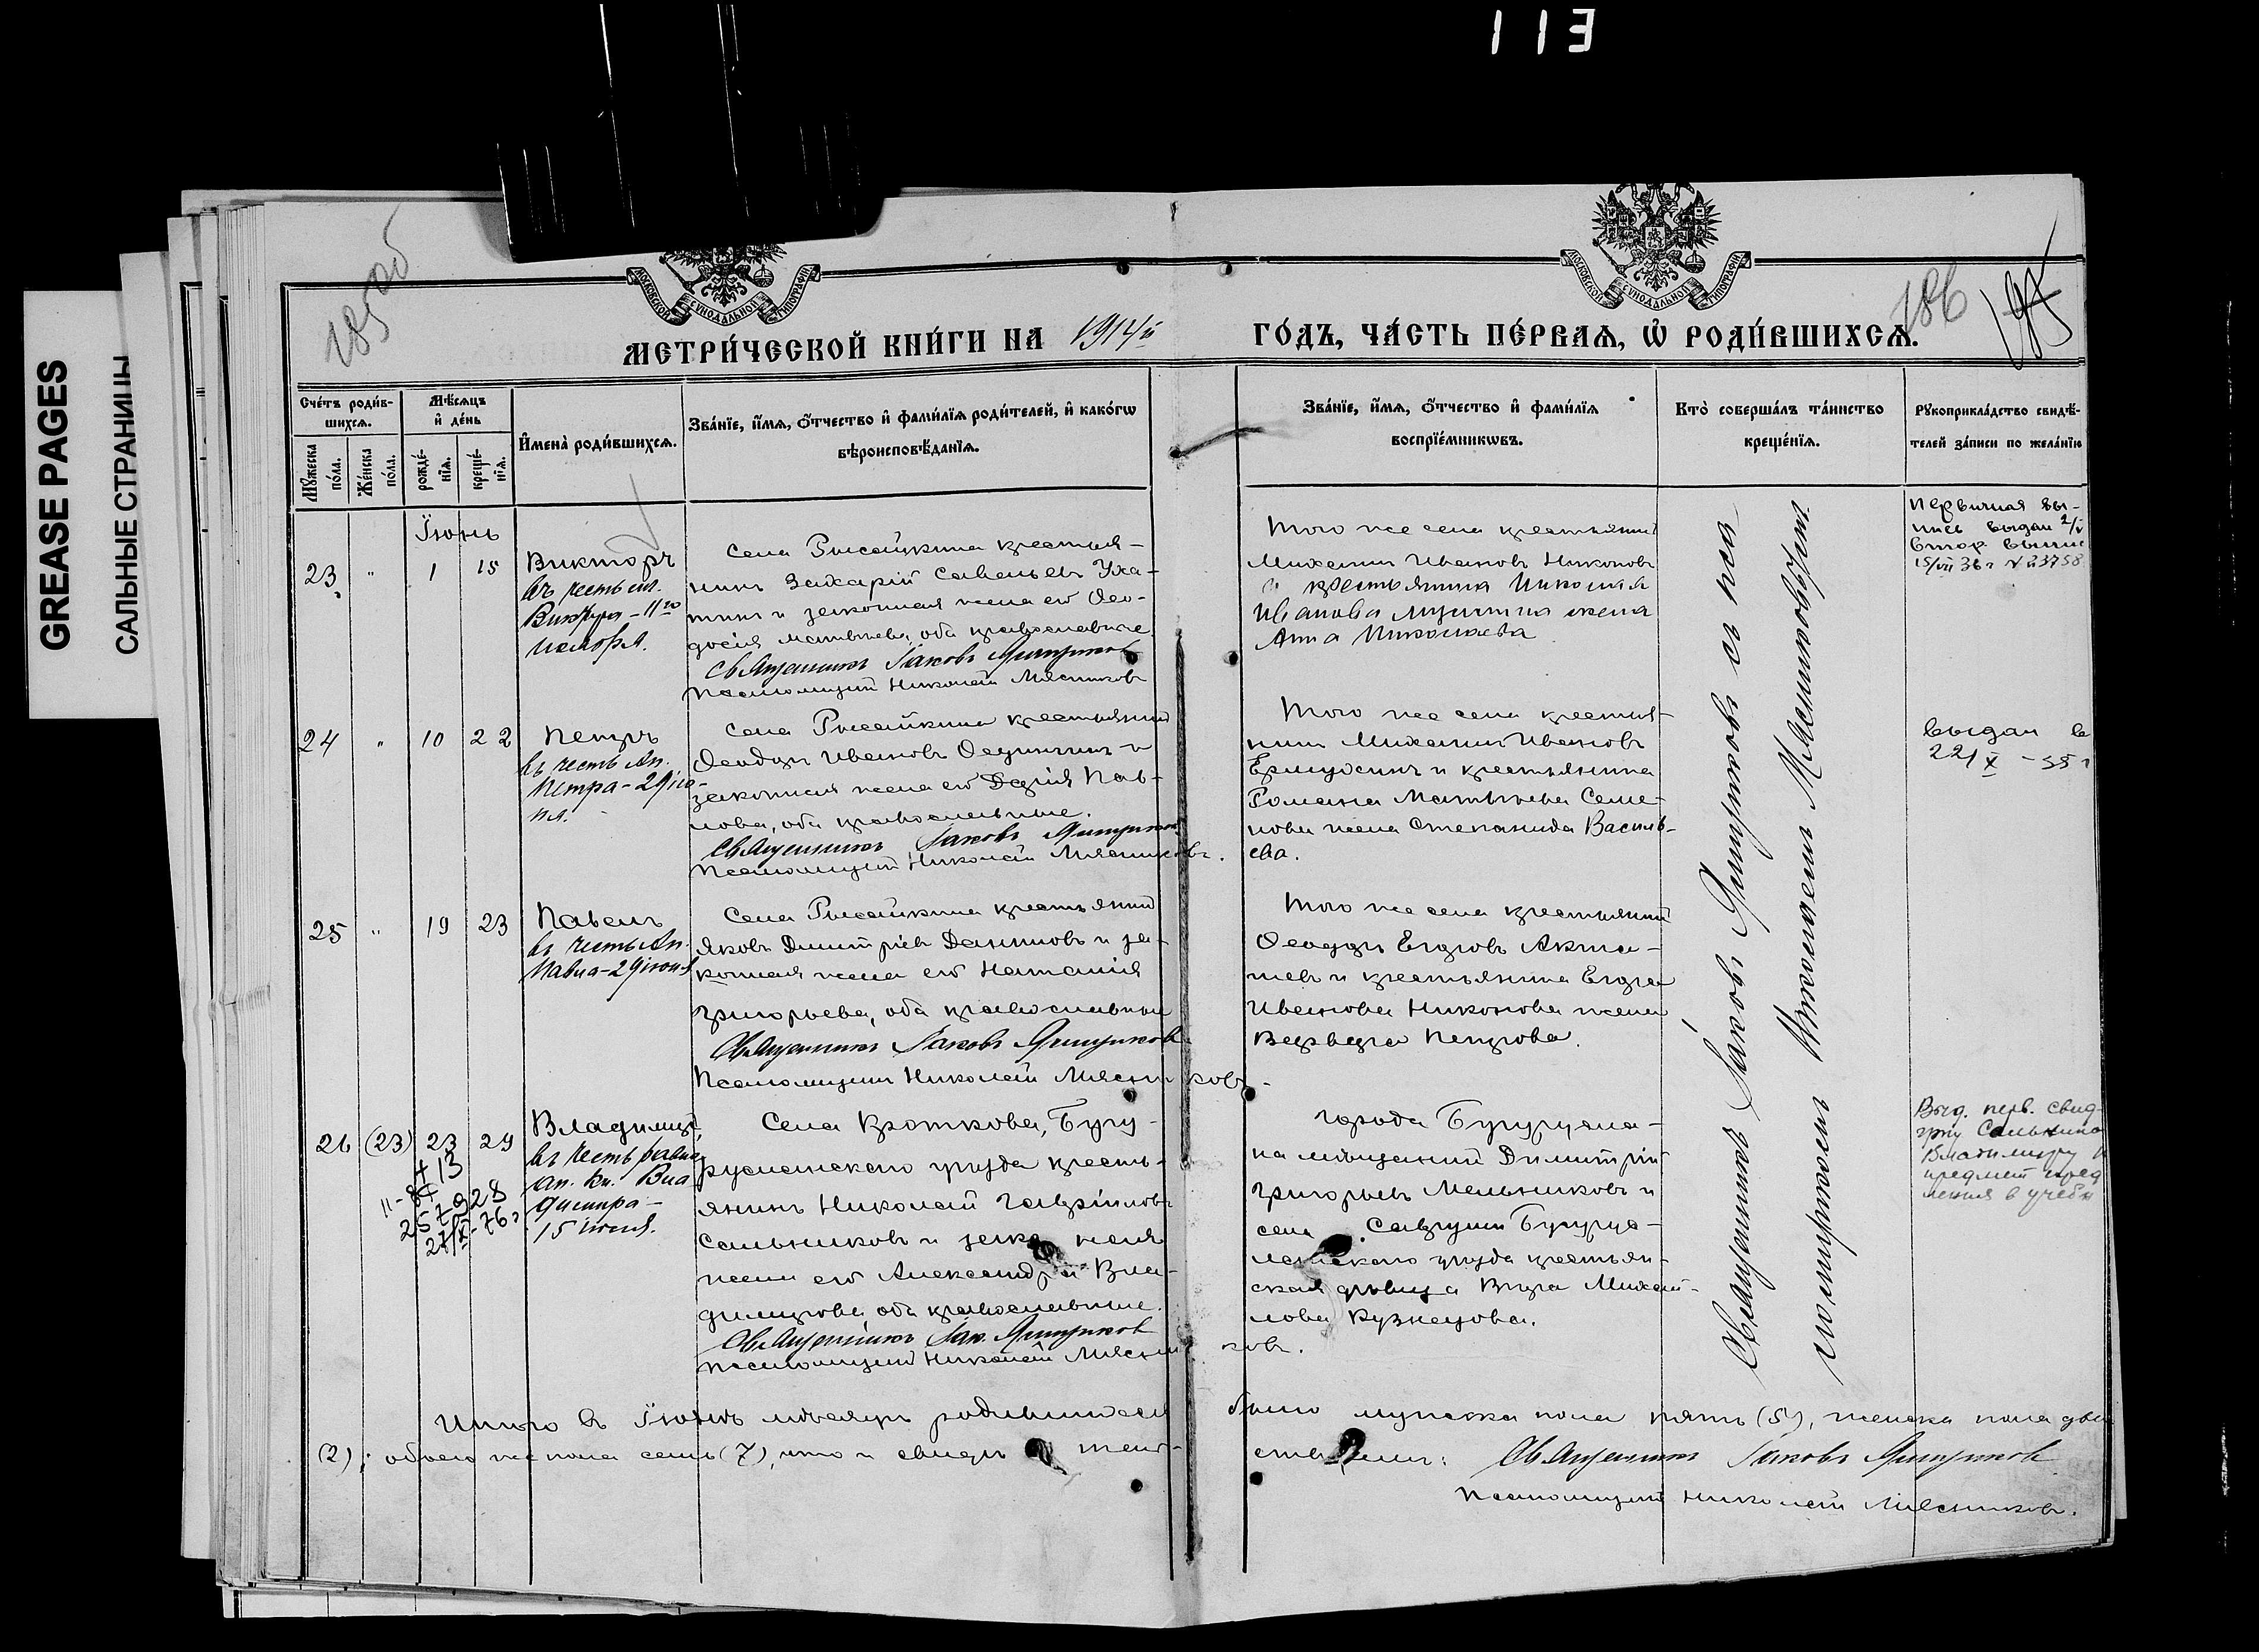 113
GREASE PAGES
САЛЬНЫЕ СТРАНИЦЫ
185 об
186
МОСКОВСКОЙ СѴНОДАЛЬНОЙ ТИПОГРАФІИ
МОСКОВСКОЙ СѴНОДАЛЬНОЙ ТИПОГРАФІИ
МЕТРИ́ЧЕСКОЙ КНИ́ГИ НА 1914й
ГО́ДЪ, ЧА́СТЬ ПЕ́РВАѦ, Ѡ҆ РОДИ́ВШИХСѦ.
Сче́тъ роди́в-
шихсѧ.
Мꙋ́жеска по́ла.
Же́нска по́ла.
Мѣ́сѧцъ
и҆ де́нь
рожде́-
нїѧ.
креще́-
нїѧ.
И҆мена̀ роди́вшихсѧ.
Зва́нїе, и҆́мѧ, ѻ҆́тчество и҆ фами́лїѧ роди́телей, и҆ како́гѡ
вѣроисповѣ́данїѧ.
Зва́нїе, и҆́мѧ, ѻ҆́тчество и҆ фами́лїѧ
воспрїе́мникѡвъ.
Кто̀ соверша́лъ та́инство
креще́нїѧ.
Рꙋкоприкла́дство свидѣ́-
телей за́писи по жела́нїю
Іюнь
23 " 1 15
Викторъ
въ честь
Виктора - 11го
ноября.
Села Рысайкина крестья-
нинъ Захарій Савельевъ Уха-
тинъ и законная жена его Ѳео-
досія Матвѣева, оба православные.
Священникъ Іаковъ
Псаломщикъ Николай Мясниковъ
Того же села крестьянинъ
Михаилъ Ивановъ Никоновъ
и крестьянина Николая
Иванова жена
Анна Николаева
Первичная вы-
пись выдан
втор. выпис
15/VII 36 г № 3758
24 " 10 22
Петръ
въ честь Ап.
Петра - 29 ію-
ня.
Села Рысайкина крестьянинъ
Ѳеодоръ Ивановъ и
законная жена его Дарія Пав-
лова, оба православные.
Священникъ Іаковъ
Псаломщикъ Николай Мясниковъ.
Того же села крестья-
нинъ Михаилъ Ивановъ
и крестьянина
Романа Матвѣева Семе-
нова жена Степанида Василь-
ева.
выдан в
22/X - 55 г
25 " 19 23
Павелъ
въ честь Ап.
Павла - 29 іюня
Села Рысайкина крестьянинъ
Яковъ Димитріевъ Даниловъ и за-
конная жена его Наталія
Григорьева, оба православные
Священникъ Іаковъ
Псаломщикъ Николай Мясниковъ.
Того же села крестьянинъ
Ѳеодоръ Егоровъ Акта-
шев и крестьянина Егора
Иванова Никонова жена
Варвара Петрова.
26 (23) 23 29
Владимиръ,
въ честь равно
ап. кн. Вла
димира -
15 іюля.
Села Кроткова, Бугу-
русланскаго уѣзда кресть-
янинъ Николай Гавріиловъ
Сальниковъ и законная
жена его Александра Вла-
димирова, оба православные.
Священникъ Іак.
Псаломщикъ Николай Мясниковъ.
Города Бугурусла-
на мѣщанинъ Димитрій
Григорьевъ Мельниковъ и
села Саврушъ Бугурус-
ланскаго уѣзда крестьян-
ская дѣвица Вѣра Михай-
лова Кузнецова.
Выд. перв. свид-
Сальнико
Владимиру
предмет
ления в учебн
Священникъ Іаковъ съ пса
ломщикомъ Николаемъ Мясниковымъ
Итого въ Іюнѣ мѣсяцѣ родившихся было мужеска пола пять (5), женска пола двѣ
(2); обоего же пола семь (7), что и свидѣтель-
ствуемъ: Священникъ Іаковъ
Псаломщикъ Николай Мясниковъ.